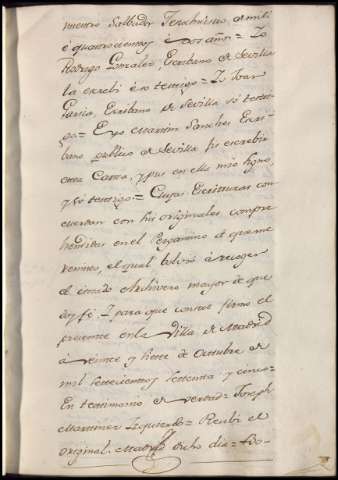 nuestro Salbador Jesuchristo de mill
é quatrocientos é dos años = Io
Rodrigo Gonzalez Escribano de Sevilla
la escrebi é so testigo = Io Ivan
Garcia, Escribano de Sevilla só testi
go = E yo Martin Sanchez Escri-
bano publico de Sevilla fis escrebir
esta Carta, y puse en ella mio signo,
y só testigo = Cuyas Escrituras con
cuerdan con sus originales, compre
hendidas en el Pergamino de que me
remito, el qual bolvió à recoger
el citado Archivero mayor de que
doy fé. Y para que conste firmo el
presente en la Villa de Madrid
à veinte y siete de Octubre de
mil setecientos settenta y cinco =
En testimonio de verdad = Joseph
Martinez Izquierdo = Recibi el
original. Madrid dicho dia =